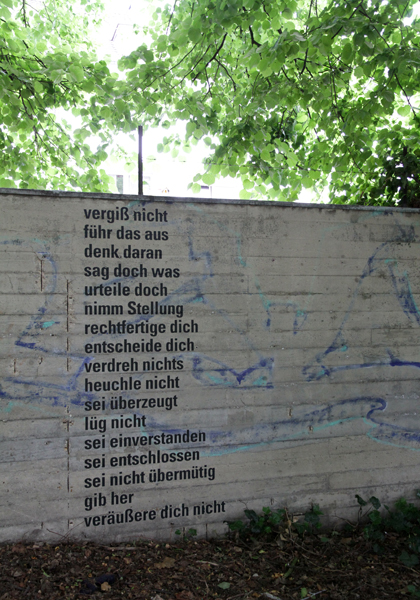 vergiß nicht
führ das aus
denk daran
sag doch was
urteile doch
nimm Stellung
rechtfertige dich
entscheide dich
verdreh nichts
heuchle nicht
sei überzeugt
lüg nicht
sei einverstanden
sei entschlossen
sei nicht übermütig
gib her
veräußere dich nicht